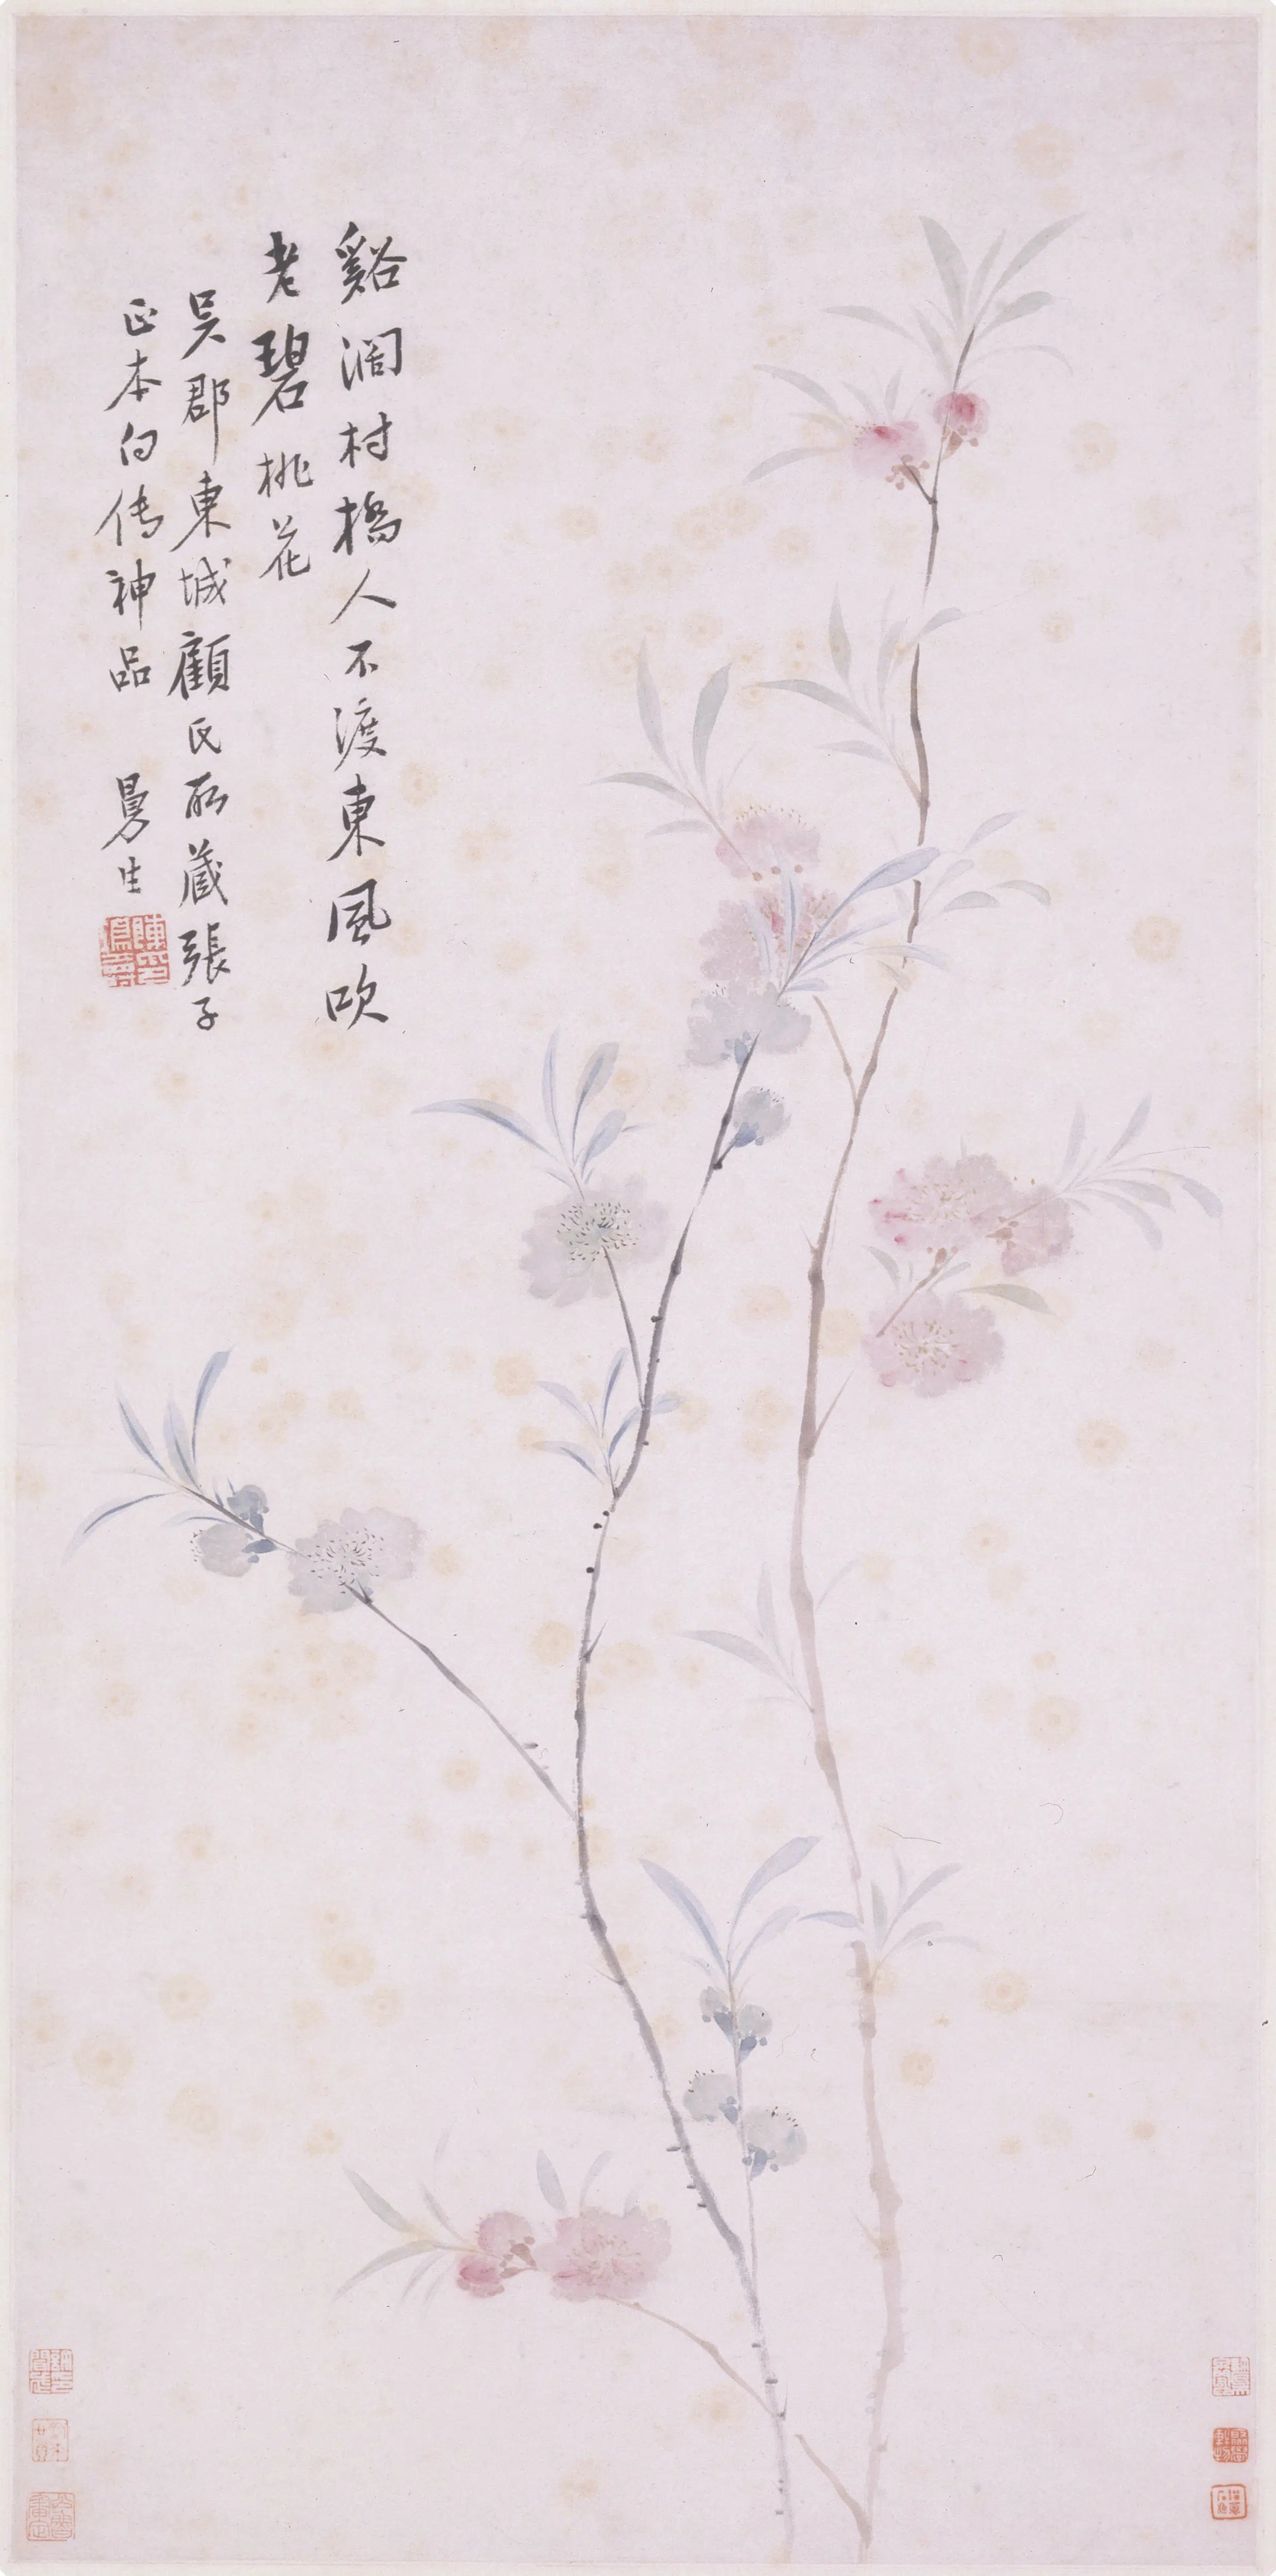 谿濶村橋人不渡東風吹
老碧桃花
吳郡東城顧氏所藏張子
正本白传神品　曼生